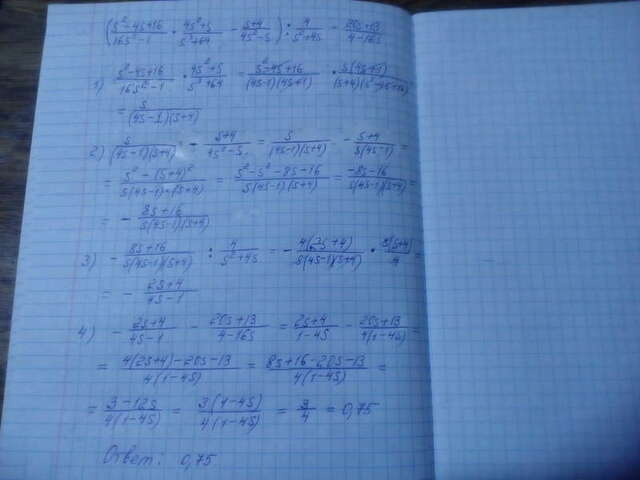 (s²-4s+16/16s²-1 · 4s²+s/s³+64 - s+4/4s²-s) : 4/s²+4s - 20s+13/4-16s
1) s²-4s+16/16s²-1 · 4s²+s/s³+64 = s²-4s+16/(4s-1)(4s+1) · s(4s+1)/(s+4)(s²-4s+16)
= s/(4s-1)(s+4)
2) s/(4s-1)(s+4) - s+4/4s²-s = s/(4s-1)(s+4) - s+4/s(4s-1) =
= s²-(s+4)²/s(4s-1)(s+4) = s²-s²-8s-16/s(4s-1)(s+4) = -8s-16/s(4s-1)(s+4) =
= - 8s+16/s(4s-1)(s+4)
3) - 8s+16/s(4s-1)(s+4) : 4/s²+4s = - 4(2s+4)/s(4s-1)(s+4) · s(s+4)/4 =
= - 2s+4/4s-1
4) - 2s+4/4s-1 - 20s+13/4-16s = 2s+4/1-4s - 20s+13/4(1-4s) =
= 4(2s+4)-20s-13/4(1-4s) = 8s+16-20s-13/4(1-4s) =
= 3-12s/4(1-4s) = 3(1-4s)/4(1-4s) = 3/4 = 0,75
Ответ: 0,75